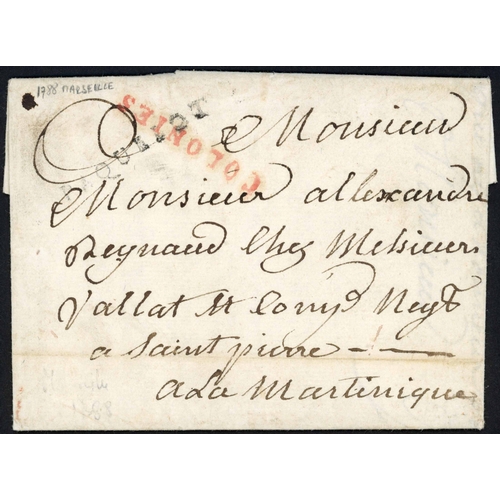 1788 MARSEILLE
COLONIES
Monsieur
Monsieur allexandre
Reynaud Chez Messieurs
Vallat et Comp.^e Negt
a Saint pierre
a La Martinique